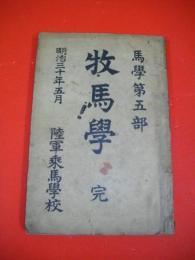 馬學第五部
牧馬學 完
明治三十年五月
陸軍乗馬學校